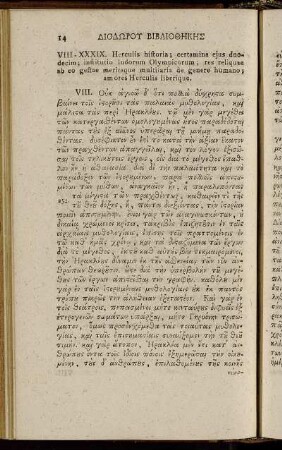 14 ΔΙΟΔΩΡΟΥ ΒΙΒΛΙΟΘΗΚΗΣ
VIII-XXXIX. Herculis historia; certamina ejus duo-
decim; institutio ludorum Olympicorum; res reliquae
ab eo gestae meritaque multifaria de genere humano;
amores Herculis liberique.
VIII. Οὐκ ἀγνοῶ δ' ὅτι πολλὰ δύσχρηστα συμ-
βαίνει τοῖς ἱστοροῦσι τὰς παλαιὰς μυθολογίας, καὶ
μάλιστα τὰς περὶ Ἡρακλέους. τῷ μὲν γὰρ μεγέθει
τῶν κατεργασθέντων
πάντας τοὺς
τῇ μνήμῃ παραδο-
θέντας.
τὴν ἀξίαν ἑκάστου
τῶν πραχθέντων ἀπαγγεῖλαι, καὶ τὸν λόγον ἐξισῶ-
σαι τοῖς ἔργοις, οἷς διὰ τὸ μέγεθος ἔπαθλον
ἦν ἡ ἀθανασία. διὰ δὲ τὴν παλαιότητα καὶ τὸ
παράδοξον τῶν ἱστορουμένων παρὰ πολλοῖς
τῶν μύθων, ἀναγκαῖον ἢ παραλιπόντας
τὰ μέγιστα τῶν πραχθέντων, καθαιρεῖν τι τῆς
τοῦ θεοῦ δόξης, ἢ πάντα διεξιόντας, τὴν ἱστορίαν
ποιεῖν ἀπιστουμένην. ἔνιοι γὰρ τῶν ἀναγινωσκόντων, οὐ
δικαίᾳ χρώμενοι κρίσει, τἀκριβὲς ἐπιζητοῦσιν ἐν ταῖς
ἀρχαίαις μυθολογίαις, ἐπίσης τοῖς πραττομένοις ἐν
τῷ καθ' ἡμᾶς χρόνῳ, καὶ τὰ
τῶν ἔργων
διὰ τὸ μέγεθος, ἐκ τοῦ καθ' αὑτοὺς βίου τεκμαιρόμενοι,
τὴν Ἡρακλέους δύναμιν ἐκ τῆς ἀσθενείας τῶν νῦν ἀν-
θρώπων θεωροῦσιν, ὥστε διὰ τὴν ὑπερβολὴν τοῦ μεγέ-
θους τῶν ἔργων ἀπιστεῖσθαι τὴν γραφήν. καθόλου μὲν
γὰρ ἐν ταῖς ἱστορουμέναις μυθολογίαις οὐκ ἐκ παντὸς
τρόπου πικρῶς τὴν ἀλήθειαν ἐξεταστέον. Καὶ γὰρ ἐν
τοῖς θεάτροις, πεπεισμένοι μήτε κενταύρους διφυεῖς ἐξ
ἑτερογενῶν σωμάτων ὑπάρξαι, μήτε Γηρυόνην τρισώμα-
τον, ὅμως προσδεχόμεθα τὰς τοιαύτας μυθολο-
γίας, καὶ ταῖς ἐπισημασίαις συναύξομεν τὴν τοῦ θεοῦ
τιμήν. καὶ γὰρ ἄτοπον, Ἡρακλέα μὲν ἔτι κατ' ἀν-
θρώπους ὄντα τοῖς ἰδίοις πόνοις ἐξημερῶσαι τὴν οἰκου-
μένην, τοὺς δ' ἀνθρώπους, ἐπιλαθομένους τῆς κοινῆς